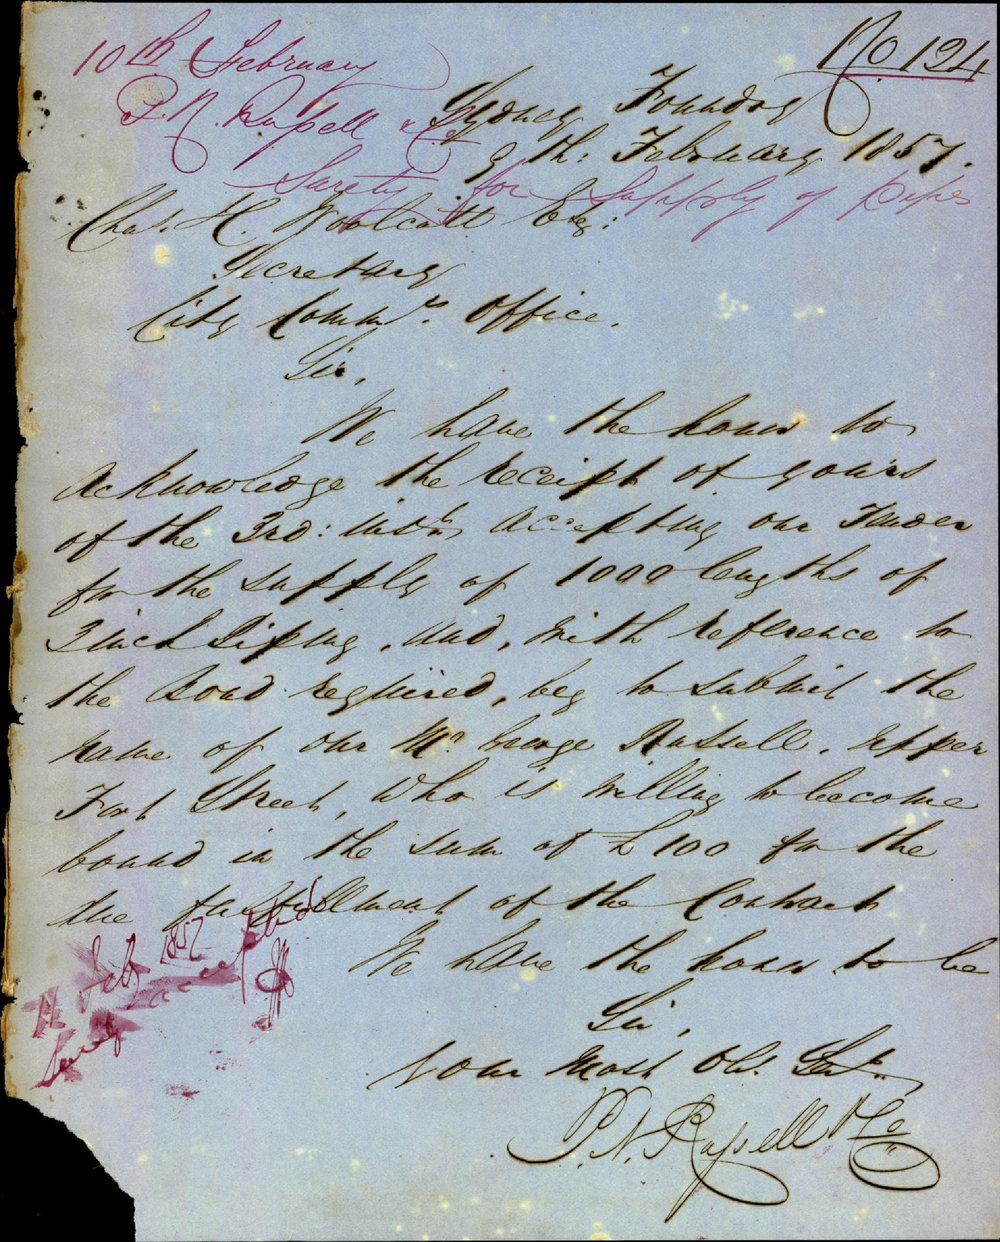 No 124
10th February
P. N. Russell & Co
Surety for Supply of pipes
Sydney Foundry
9th: February 1857.
Chas. H. Woolcott Esq:
Secretary
City Commrs. Office.
Sir,
We have the honor to
Acknowledge the receipt of yours
of the 3rd: Inst. Accepting our Tender
for the supply of 1000 lengths of
3 inch Piping, and, with reference to
the Bond required, beg to submit the
name of our Mr George Russell, Upper
Fort Street, who is willing to become
bound in the sum of £100 for the
due fulfillment of the Contract
We have the honor to be
Sir,
Your Most Obt. Servts.
P. N. Russell & Co
Feby 1857
surety accepted